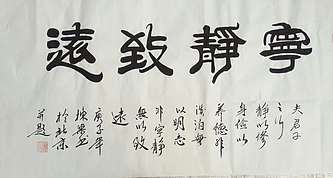 寧靜致遠
夫君子
之行
靜以修
身儉以
养德非
淡泊無
以明志
非寧靜
無以致
遠
庚子年
書
於北京
并題